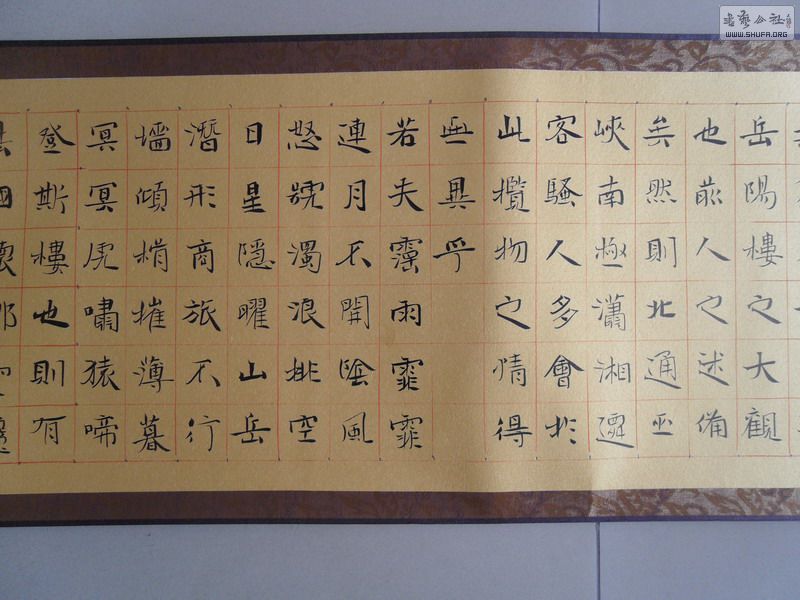 岳陽樓之大觀
也前人之述備
矣然則北通巫
峽南極瀟湘遷
客騷人多會於
此攬物之情得
無異乎
若夫霪雨霏霏
連月不開陰風
怒號濁浪排空
日星隱曜山岳
潛形商旅不行
墻傾楫摧薄暮
冥冥虎嘯猿啼
登斯樓也則有
書藝公社
WWW.SHUFA.ORG